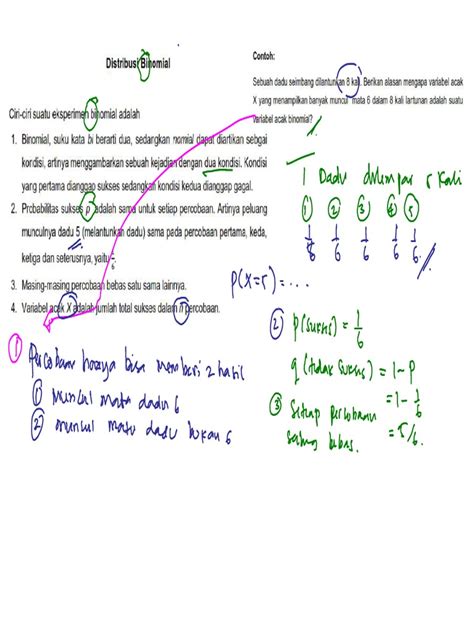 Distribusi Binomial
Ciri-ciri suatu eksperimen binomial adalah
1. Binomial, suku kata bi berarti dua, sedangkan nomial dapat diartikan sebgai
kordisi, artinya menggambarkan sebuah kejadian dengan dua kondisi. Kondisi
yang pertama dianggap sukses sedangkan kondisi kedua dianggap gagal.
2. Probabilitas sukses p adalah sama untuk setiap percobaan. Artinya peluang
munculnya dadu 5 (melantunkan dadu) sama pada percobaan pertama, keda,
ketiga dan seterusnya, yaitu 1/6.
3. Masing-masing percobaan bebas satu sama lainnya.
4. Variabel acak X adalah jumlah total sukses dalam n percobaan.
① Percobaan hanya bisa memberi 2 hasil
① Muncul mata dadu 6
② muncul mata dadu bukan 6
Contoh:
Sebuah dadu seimbang dilantunkan 8 kali. Berikan alasan mengapa variabel acak
X yang menampilkan banyak muncul mata 6 dalam 8 kali lantunan adalah suatu
variabel acak binomia?
1 Dadu dilempar 5 kali
① ② ③ ④ ⑤
1/6 1/6 1/6 1/6 1/6
P(X=5) = ...
② p(sukses) = 1/6
q (tidak sukses) = 1-p
= 1 - 1/6
= 5/6.
③ Setiap percobaan
saling bebas.